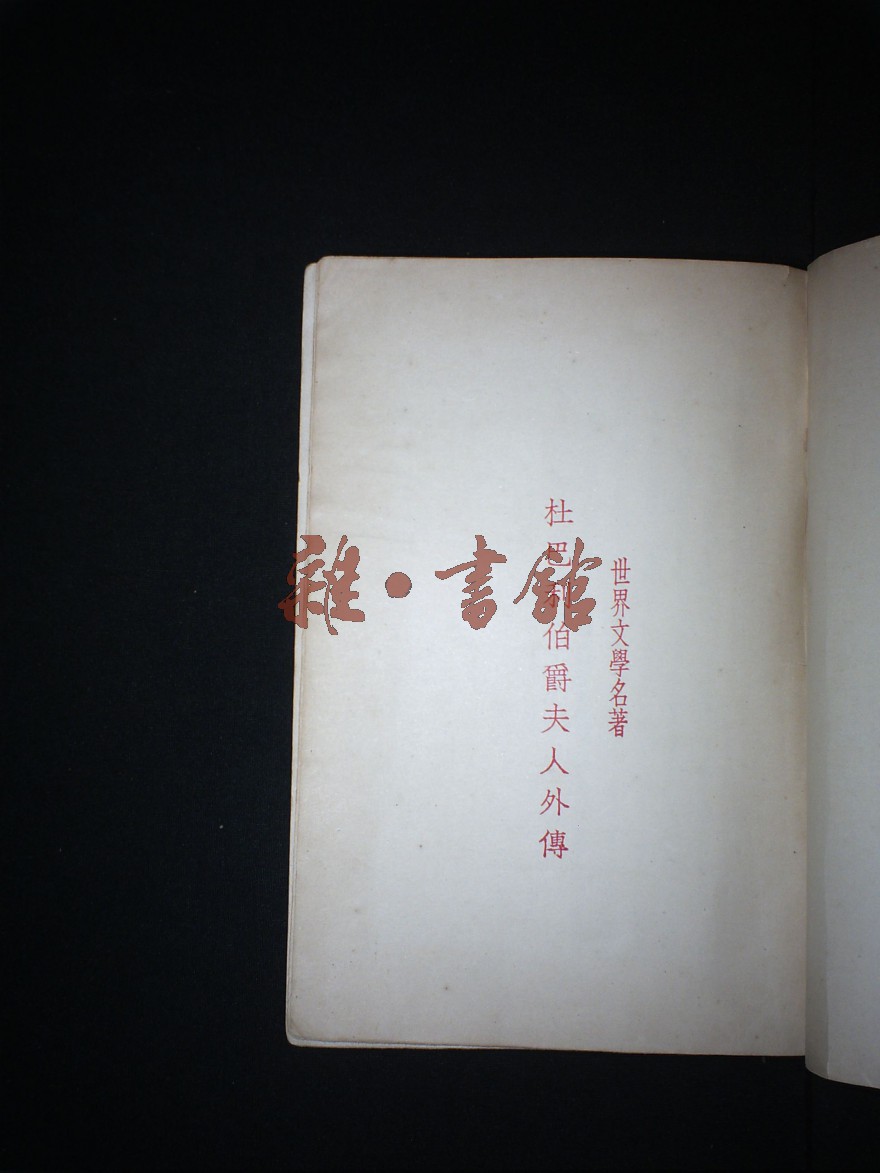 世界文學名著
杜巴利伯爵夫人外傳
雜·書館